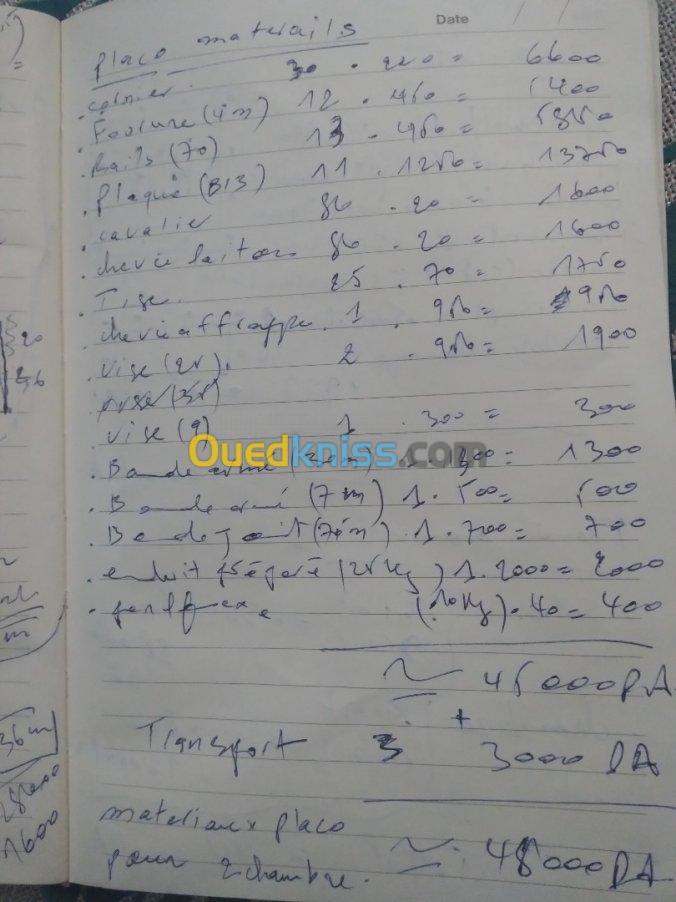 Date / /
placo materails
. cornier. 30 . 220 = 6600
. Fourure (4m) 12 . 450 = 5400
. Rails (70) 13 . 450 = 5850
. plaque (B13) 11 . 1250 = 13750
. cavalier 80 . 20 = 1600
. chevie laiton 80 . 20 = 1600
. Tige. 25 . 70 = 1750
. chevie affrappe. 1 . 950 = 950
. vise (25). 2 . 950 = 1900
vise (35)
. vise (9) 1 . 300 = 300
Ouedkniss.com
. Bande armé 1 . 1300 = 1300
. Bande armé (7m) 1 . 500 = 500
. Bande joint (70m) . 1 . 700 = 700
. enduit préparé (25 kg) 1 . 2000 = 2000
(10 kg) . 40 = 400
≃ 45000 DA
+
Transport 3 3000 DA
materiaux placo
pour 2 chambre. ≃ 48000 DA
20
36m
28000
1600